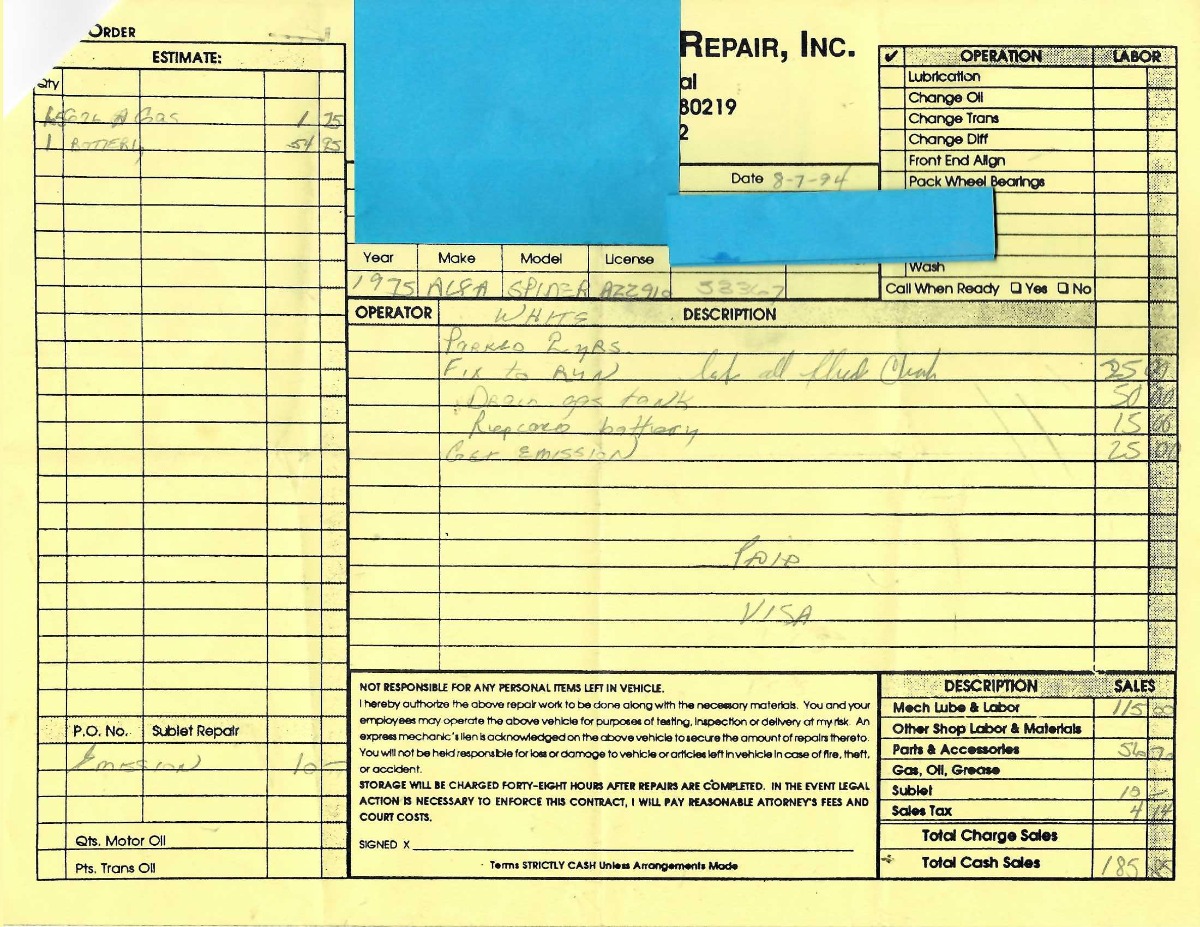 ORDER
ESTIMATE:
Qty
Gas 1 75
1 BATTERY 54 95
P.O. No. Sublet Repair
EMISSION 10 -
Qts. Motor Oil
Pts. Trans Oil
REPAIR, INC.
al
80219
2
Date 8-7-94
Year Make Model License
1975 ALFA SPIDER 53367
OPERATOR WHITE DESCRIPTION
PARKED 2 yRS.
Fix to RUN all fluid Check 25 00
Drain gas tank 50 00
battery 15 00
Get EMISSION 25 00
PAID
VISA
✔ OPERATION LABOR
Lubrication
Change Oil
Change Trans
Change Diff
Front End Align
Pack Wheel Bearings
Wash
Call When Ready ☐ Yes ☐ No
NOT RESPONSIBLE FOR ANY PERSONAL ITEMS LEFT IN VEHICLE.
I hereby authorize the above repair work to be done along with the necessary materials. You and your
employees may operate the above vehicle for purposes of testing, inspection or delivery at my risk. An
express mechanic's lien is acknowledged on the above vehicle to secure the amount of repairs thereto.
You will not be held responsible for loss or damage to vehicle or articles left in vehicle in case of fire, theft,
or accident.
STORAGE WILL BE CHARGED FORTY-EIGHT HOURS AFTER REPAIRS ARE COMPLETED. IN THE EVENT LEGAL
ACTION IS NECESSARY TO ENFORCE THIS CONTRACT, I WILL PAY REASONABLE ATTORNEY'S FEES AND
COURT COSTS.
SIGNED X
Terms STRICTLY CASH Unless Arrangements Made
DESCRIPTION SALES
Mech Lube & Labor 115 00
Other Shop Labor & Materials
Parts & Accessories 56 70
Gas, Oil, Grease
Sublet 10 -
Sales Tax 4 14
Total Charge Sales
Total Cash Sales 185